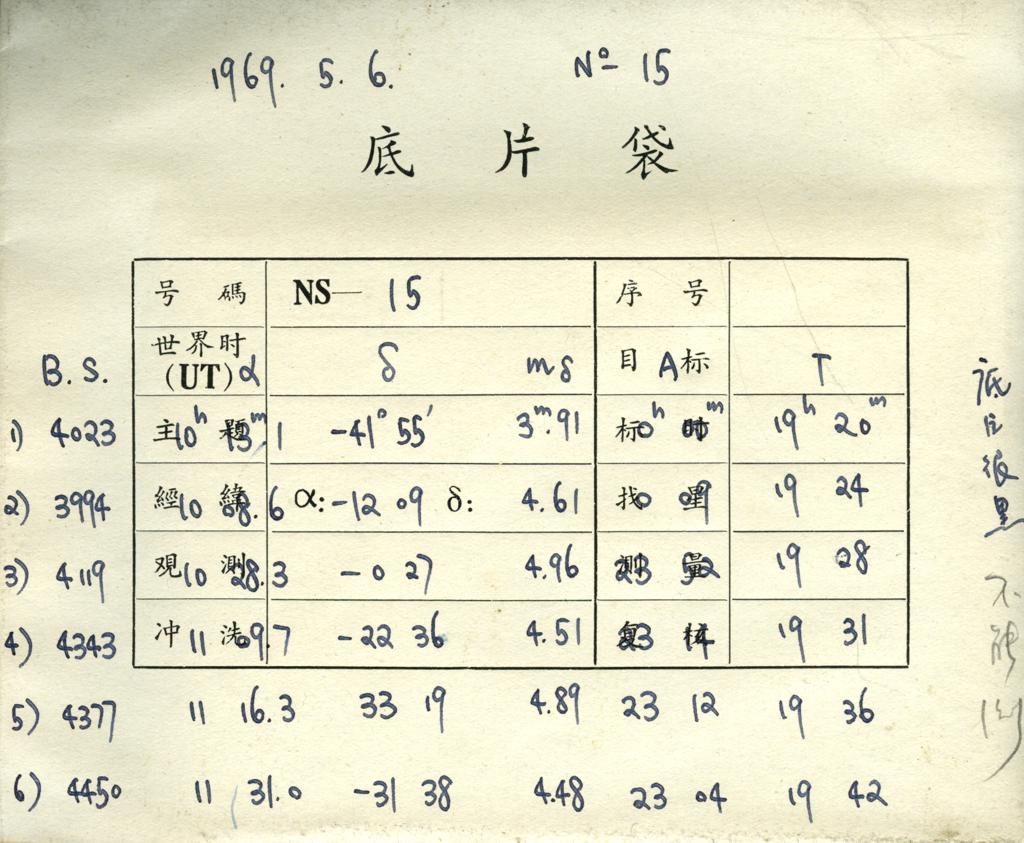 1969. 5. 6. Nº 15
底 片 袋
号 碼 NS— 15 序 号
世界时
B. S. (UT) α δ mδ 目 A 标 T
1) 4023 主 題 10ʰ 13ᵐ.1 -41° 55′ 3ᵐ.91 标 时 0ʰ 00ᵐ 19ʰ 20ᵐ
2) 3994 經 緯 10 08.6 α: -12 09 δ: 4.61 找 星 0 09 19 24
3) 4119 观 測 10 28.3 -0 27 4.96 測 量 23 52 19 28
4) 4343 冲 洗 11 09.7 -22 36 4.51 复 核 23 14 19 31
5) 4377 11 16.3 33 19 4.89 23 12 19 36
6) 4450 11 31.0 -31 38 4.48 23 04 19 42
底片很黑
不能